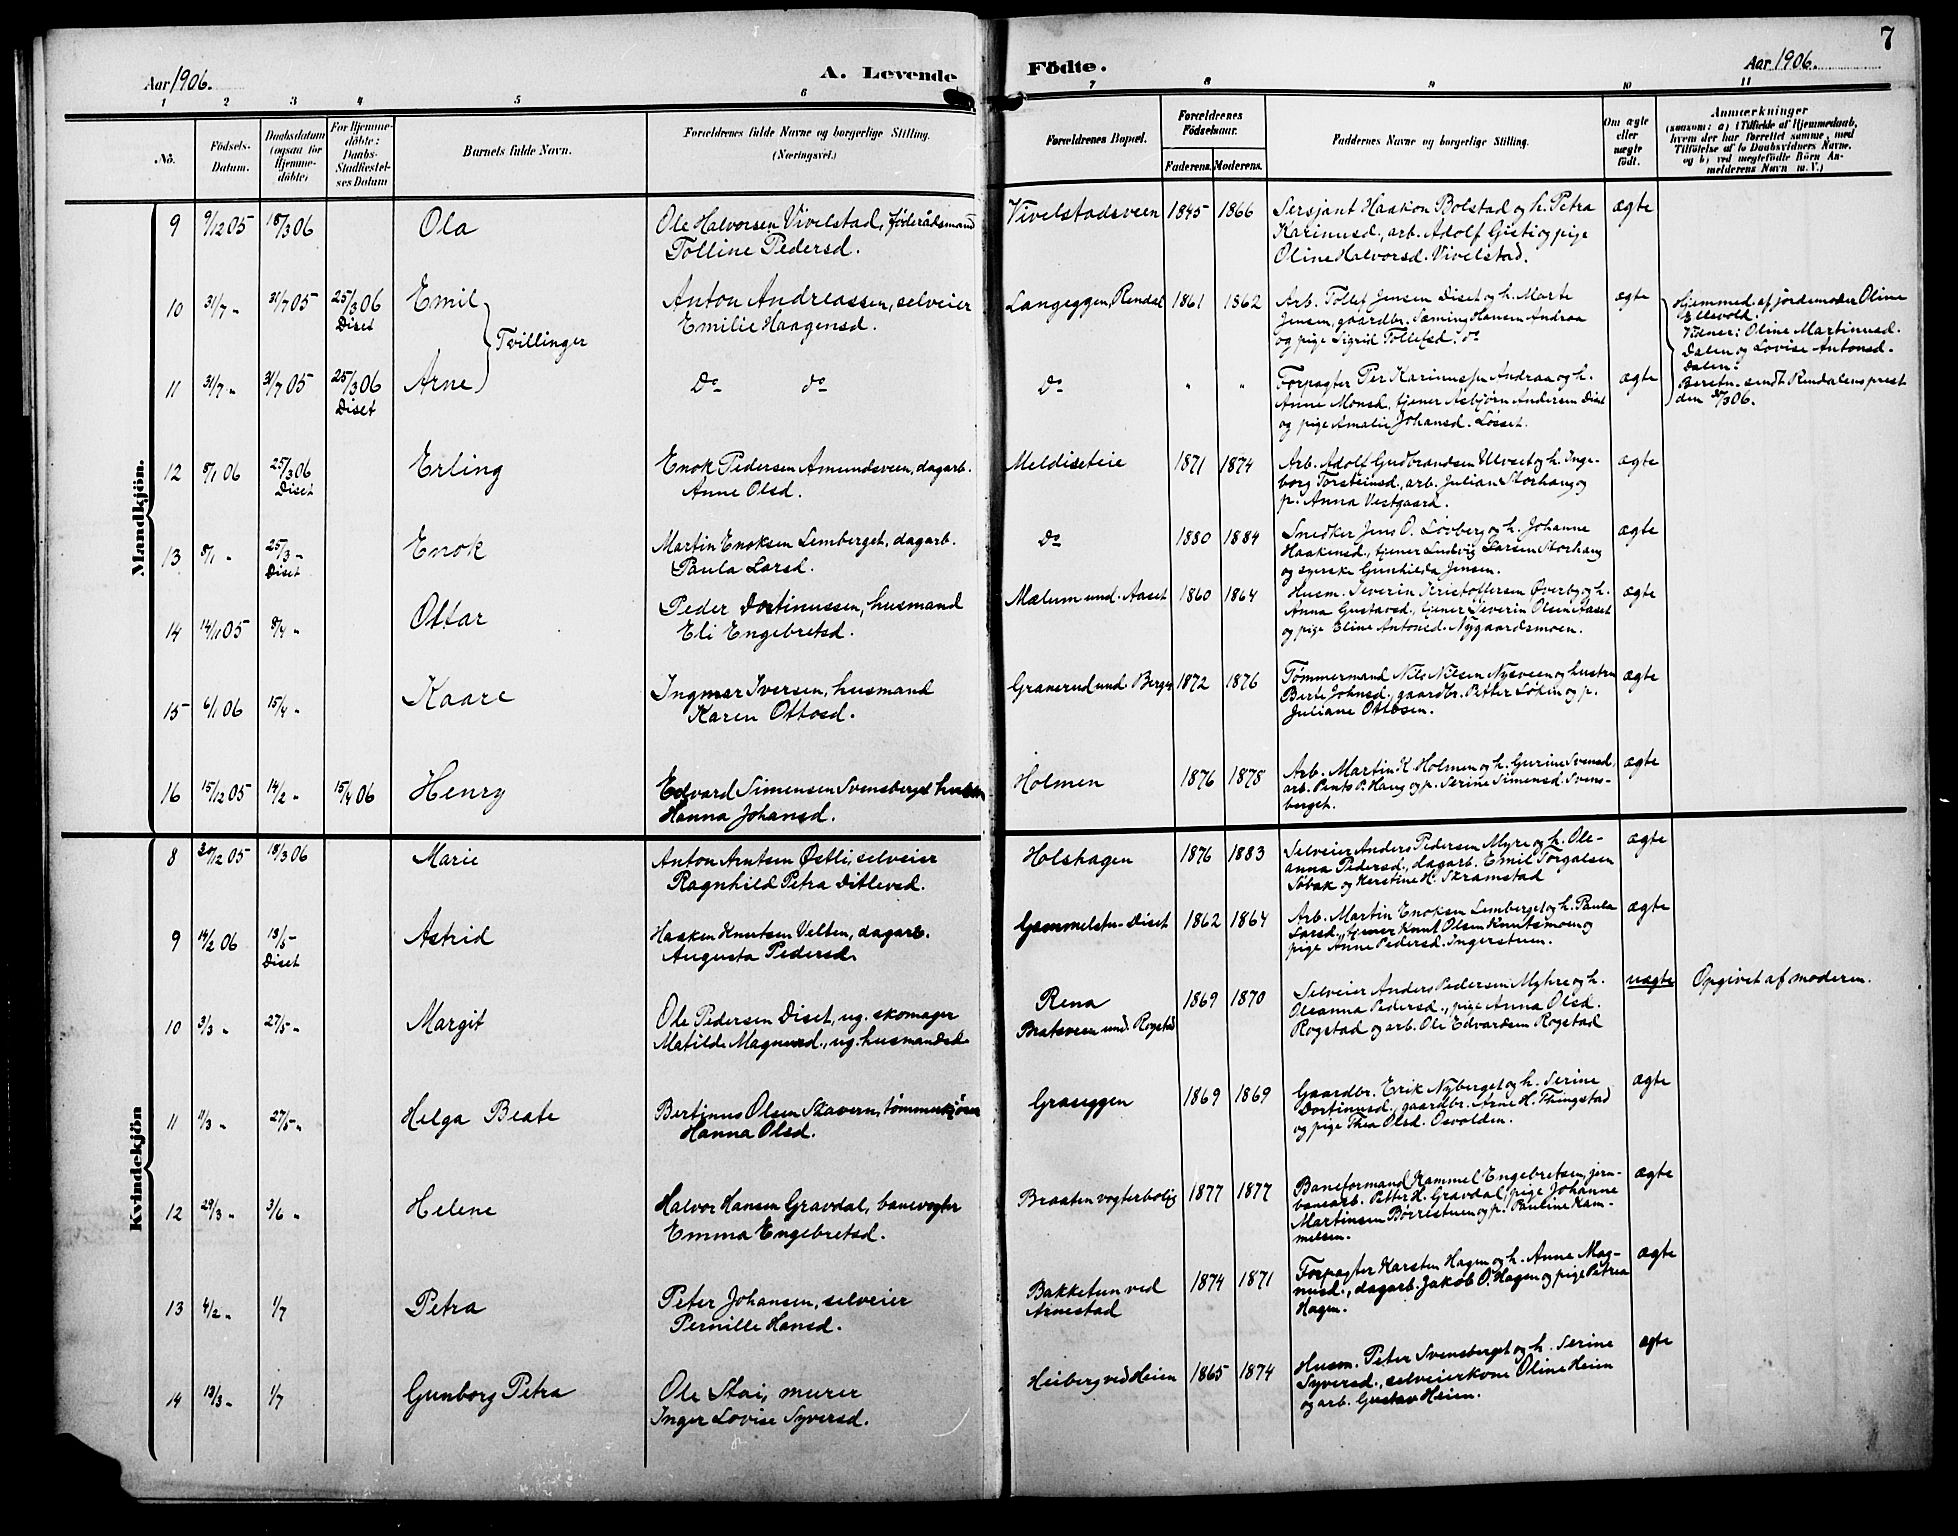 7
Aar 1906.
A. Levende
Fødte.
Aar 1906.
1 2 3 4 5 6 7 8 9 10 11
No.
Fødsels-
Datum.
Daabsdatum
(ogsaa for
Hjemme-
døbte)
For Hjemme-
døbte:
Daabs-
Stadfæstel-
ses Datum
Barnets fulde Navn.
Forældrenes fulde Navne og borgerlige Stilling.
(Næringsvei.)
Forældrenes Bopæl.
Forældrenes
Fødselsaar.
Faderens. Moderens.
Faddernes Navne og borgerlige Stilling.
Om ægte
eller
uægte
født.
Anmærkninger
(saasom: a) i Tilfælde af Hjemmedaab,
hvem der har forrettet samme, med
Tilføielse af to Daabsvidners Navne,
og b) ved uægtefødte Børn An-
melderens Navn m. V.)
Mandkjøn.
9 9/12 05 18/3 06 Ola
Ole Halvorsen Vivelstad, føderådsmand
Tolline Pedersd.
Vivelstadsveen 1845 1866
Sersjant Haakon Bolstad og h. Petra
Karinusd., arb. Adolf Gusti og pige
Oline Halvorsd. Vivelstad.
ægte
10 31/7 " 31/7 05 25/3 06
Diset
Emil
Tvillinger
Anton Andreassen, selveier
Emilie Haagensd.
Langeggen, Rendal 1861 1862
Arb. Tollef Jensen Diset og h. Marte
Jensen, gaardbr. Sæming Hansen Andraa
og pige Sigrid Tollefsd. do
ægte
Hjemmed. af jordemoder Oline
Ellevold.
Vidner: Oline Martinusd.
Dalen og Lovise Antonsd.
Dalen.
Beretn. sendt Rendalens prest
den 30/3 06.
11 31/7 " 31/7 05 25/3 06
Diset
Arne
Do do
Do " "
Forpagter Per Karinusen Andraa og h.
Anne Monsd., tjener Asbjørn Andersen Diset
og pige Amalie Johansd. Løsset.
ægte
12 8/1 06 25/3 06
Diset
Erling
Enok Pedersen Amundsveen, dagarb.
Anne Olsd.
Meldiseteie 1871 1874
Arb. Adolf Gudbrandsen Ulvset og h. Inge-
borg Torsteinsd., arb. Julian Storhaug og
p. Anna Vestgaard.
ægte
13 8/1 " 25/3 "
Diset
Enok
Martin Enoksen Lemberget, dagarb.
Paula Larsd.
Do 1880 1884
Snedker Jens O. Lovberg og h. Johanne
Haakensd., tjener Ludvig Larsen Storhaug
og syerske Gunhilda Jensen.
ægte
14 14/11 05 8/4 " Ottar
Peder Dortinussen, husmand
Eli Engebretsd.
Mælum und. Aaset 1860 1864
Husm. Severin Kristoffersen Øverby og h.
Anna Gustavsd., tjener Severin Olsen Aaset
og pige Eline Antonsd. Nygaardsmoen.
ægte
15 6/1 06 15/4 " Kaare
Ingmar Iversen, husmand
Karen Ottosd.
Granerud und. Berger 1872 1876
Tømmermand Nils Nilsen Nysveen og hustru
Berte Johnsd., gaardbr. Petter Løken og p.
Juliane Ottosen.
ægte
16 15/12 05 14/2 " 15/4 06 Henry
Edvard Simensen Svensberget husm
Hanna Johansd.
Holmen 1876 1878
Arb. Martin K. Holmen og h. Gurine Svensd.
arb. Pents P. Haug og p. Serine Simensd. Svens-
berget.
ægte
Kvindekjøn
8 27/12 05 18/3 06 Marie
Anton Arntsen Østli, selveier
Ragnhild Petra Ditlevsd.
Holshagen 1876 1883
Selveier Anders Pedersen Myre og h. Ole-
anna Pedersd., dagarb. Emil Torgalsen
Søbak og Kerstine H. Skramstad
ægte
9 14/2 06 13/5 "
Diset
Astrid
Haaken Knutsen Velten, dagarb.
Augusta Pedersd.
Gammelstu-Diset 1862 1864
Arb. Martin Enoksen Lemberget og h. Paula
Larsd., tjener Knut Olsen Knutsmoen og
pige Anne Pedersd. Ingerstuen.
ægte
10 3/3 " 27/5 " Margit
Ole Pedersen Diset, ug. skomager
Matilde Magnusd., ug. husmandsd.
Rena
Bratsveen und. Rogstad
1869 1870
Selveier Anders Pedersen Myhre og h.
Oleanna Pedersd., pige Anna Olsd.
Rogstad og arb. Ole Edvardsen Rogstad
uægte
Opgivet af moderen.
11 11/3 " 27/5 " Helga Beate
Bertinus Olsen Skavern, tømmerkjører
Hanna Olsd.
Graseggen 1869 1869
Gaardbr. Erik Nyberget og h. Serine
Dortinusd., gaardbr. Arne H. Thingstad
og pige Thea Olsd. Osvolden.
ægte
12 29/3 " 3/6 " Helene
Halvor Hansen Gravdal, banevogter
Emma Engebretsd.
Braaten vogterbolig 1877 1877
Baneformand Kammel Engebretsen, jern-
banearb. Petter H. Gravdal, pige Johanne
Martinsen Børrestuen og p. Pauline Kam-
melsen.
ægte
13 4/2 " 1/7 Petra
Peter Johansen, selveier
Pernille Hansd.
Bakketun ved
Arnestad
1874 1871
Forpagter Karsten Hagen og h. Anne Mag-
nusd., dagarb. Jakob O. Hagen og pige Petrea
Hagen.
ægte
14 13/3 " 1/7 Gunborg Petra
Ole Stai, murer
Inger Lovise Syversd.
Heiberg ved Heien 1865 1874
Husm. Peter Svensberget og h. Serine
Syversd., selveierkone Oline Heien
og arb. Gustav Heien.
ægte